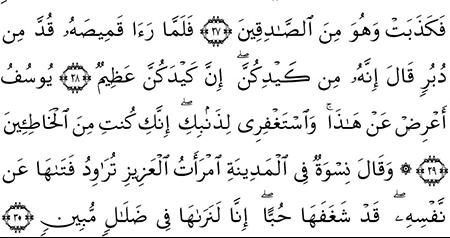 فَكَذَبَتْ وَهُوَ مِنَ ٱلصَّـٰدِقِينَ ﴿٢٧﴾ فَلَمَّا رَءَا قَمِيصَهُۥ قُدَّ مِن
دُبُرٍ قَالَ إِنَّهُۥ مِن كَيْدِكُنَّ ۖ إِنَّ كَيْدَكُنَّ عَظِيمٌ ﴿٢٨﴾ يُوسُفُ
أَعْرِضْ عَنْ هَـٰذَا ۚ وَٱسْتَغْفِرِى لِذَنۢبِكِ ۖ إِنَّكِ كُنتِ مِنَ ٱلْخَاطِـِٔينَ
﴿٢٩﴾ ۞ وَقَالَ نِسْوَةٌ فِى ٱلْمَدِينَةِ ٱمْرَأَتُ ٱلْعَزِيزِ تُرَٰوِدُ فَتَىٰهَا عَن
نَّفْسِهِۦ ۖ قَدْ شَغَفَهَا حُبًّا ۖ إِنَّا لَنَرَىٰهَا فِى ضَلَـٰلٍ مُّبِينٍ ﴿٣٠﴾